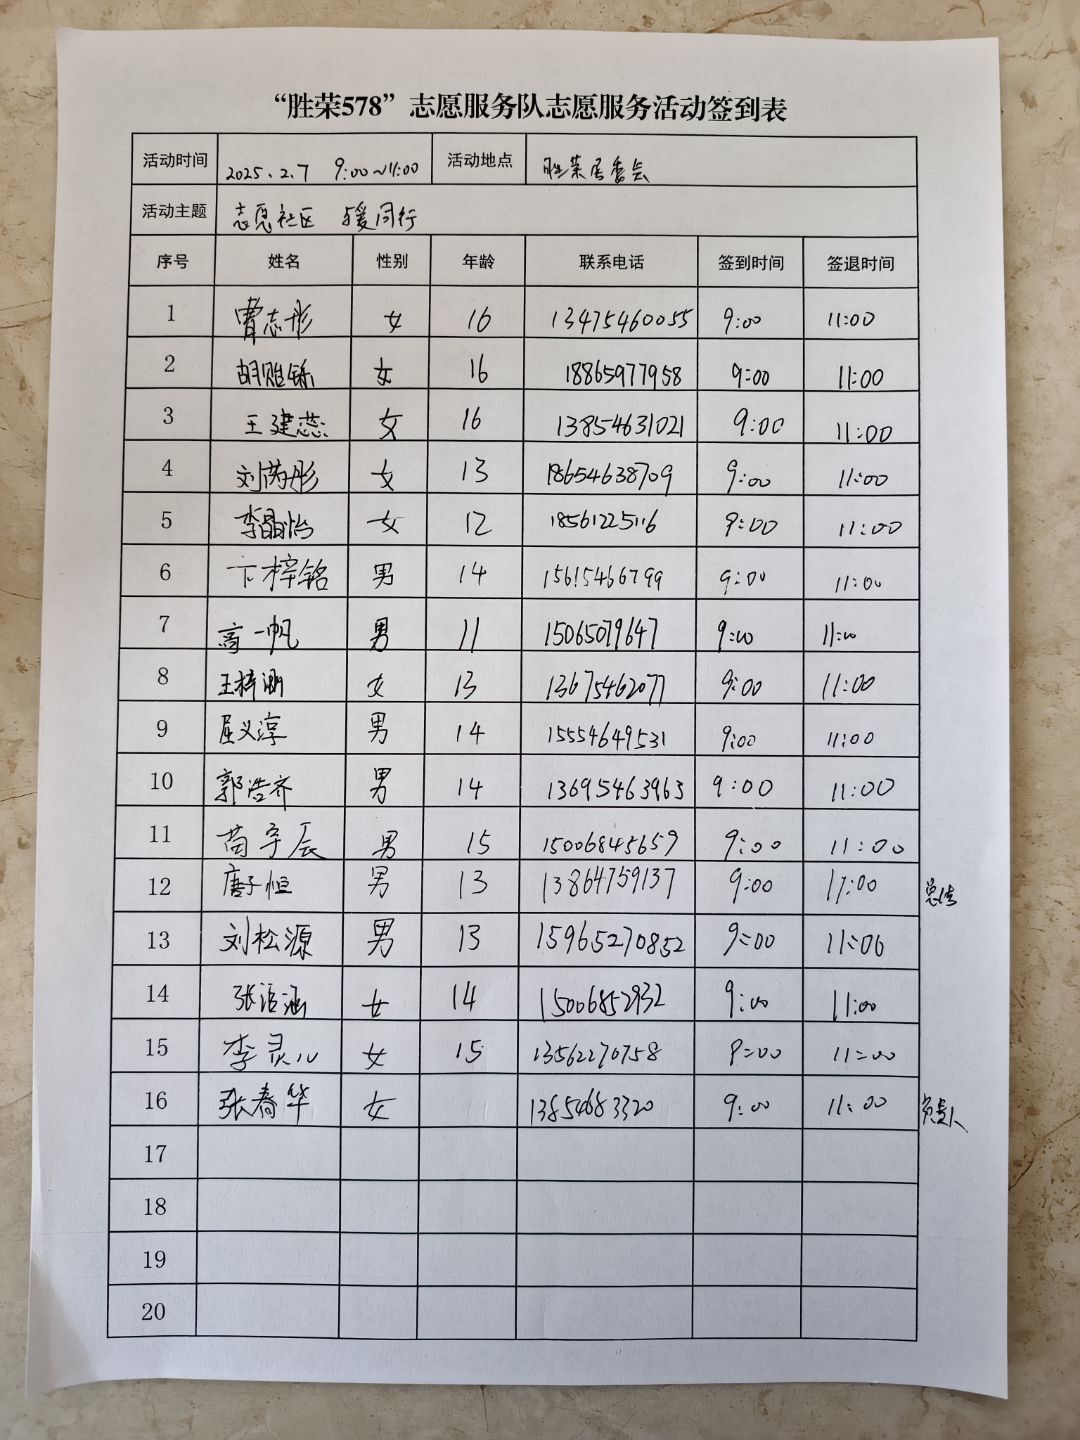 “胜荣578”志愿服务队志愿服务活动签到表
活动时间 2025.2.7 9:00~11:00 活动地点 胜荣居委会
活动主题 志愿社区 暖同行
序号 姓名 性别 年龄 联系电话 签到时间 签退时间
1 曹志彤 女 16 13475460055 9:00 11:00
2 胡贻铄 女 16 18865977958 9:00 11:00
3 王建蕊 女 16 13854631021 9:00 11:00
4 刘芮彤 女 13 18654638709 9:00 11:00
5 李晶怡 女 12 18561225116 9:00 11:00
6 卞梓铭 男 14 15615466799 9:00 11:00
7 高一帆 男 11 15065079647 9:00 11:00
8 王梓涵 女 13 13675462077 9:00 11:00
9 屈义淳 男 14 15554649531 9:00 11:00
10 郭浩齐 男 14 13695463963 9:00 11:00
11 苟宇辰 男 15 15006845659 9:00 11:00
12 唐子恒 男 13 13864759137 9:00 11:00 总结
13 刘松源 男 13 15965270852 9:00 11:00
14 张洁涵 女 14 15006852932 9:00 11:00
15 李灵儿 女 15 13562270758 9:00 11:00
16 张春华 女 13854683320 9:00 11:00 负责人
17
18
19
20